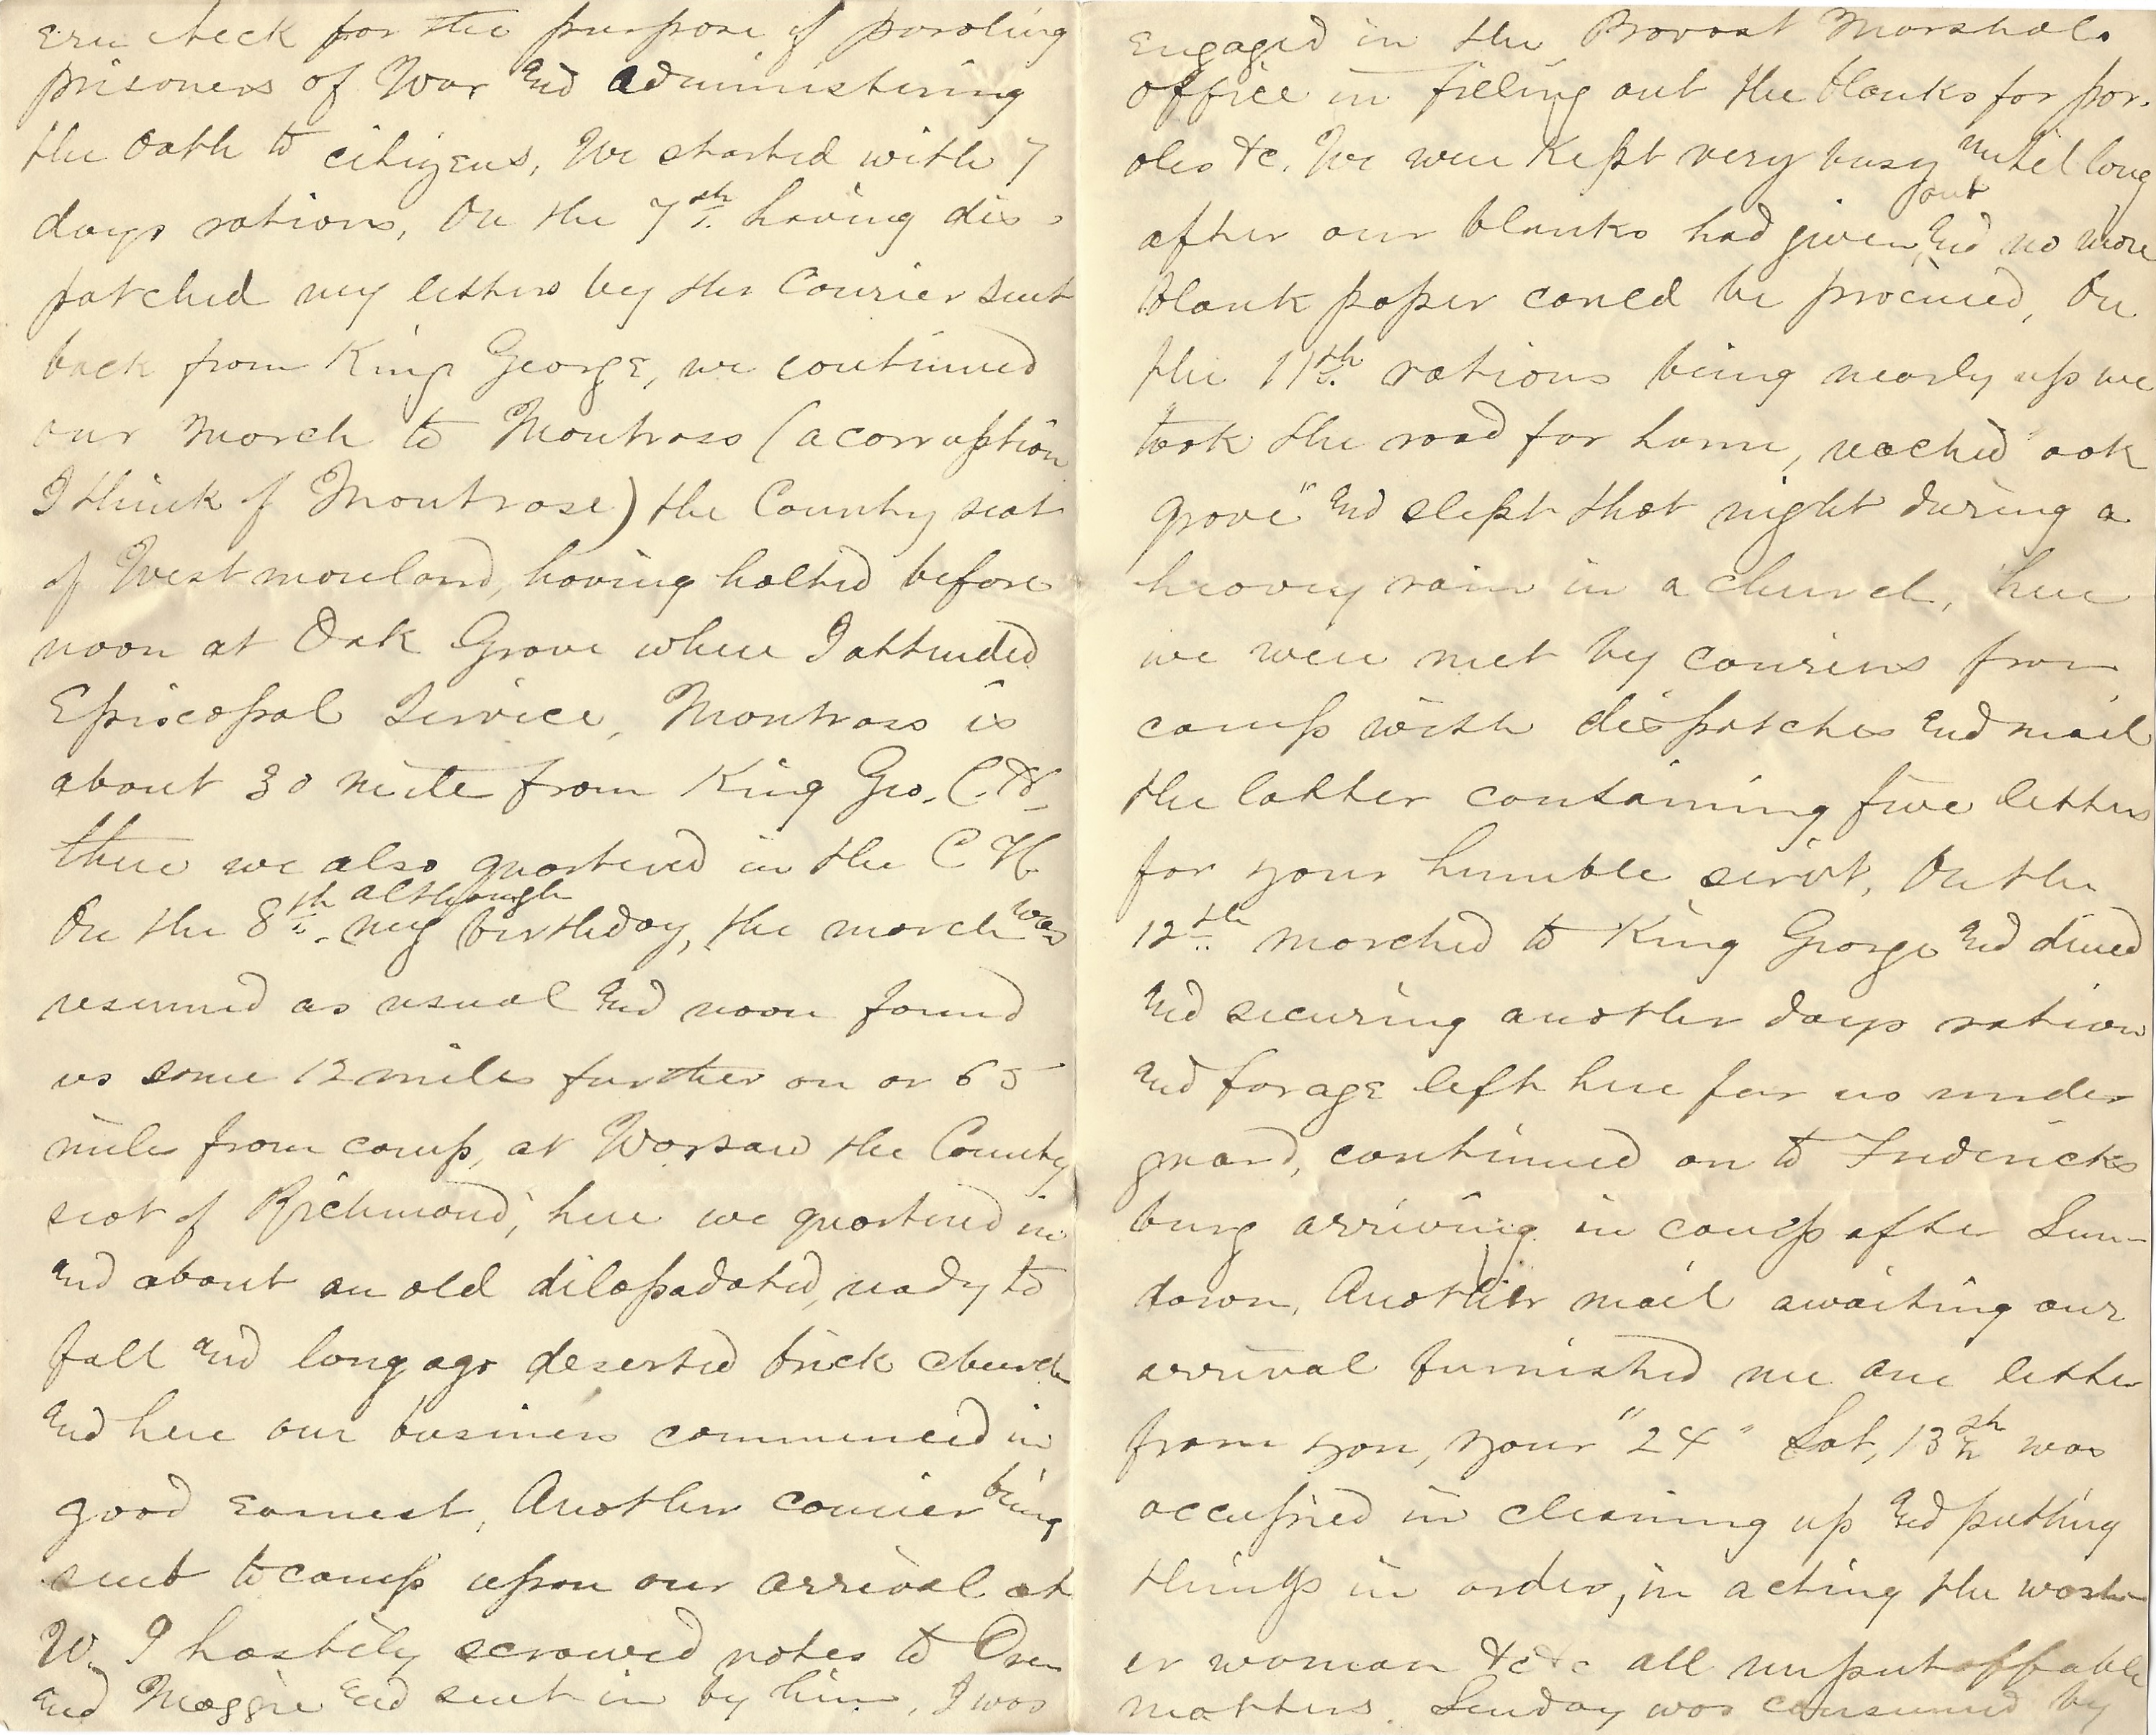 ern Neck for the purpose of paroling
prisoners of War and administering
the Oath to citizens, We started with 7
days rations, On the 7th. having dis-
patched my letters by the Courier sent
back from King George, we continued
our march to Montross (a corruption
I think of Montrose) the County seat
of Westmoreland, having halted before
noon at Oak Grove where I attended
Episcopal Service, Montross is
about 30 mile from King Geo. C.H.
there we also quartered in the C H.
On the 8th. although my birthday, the march was
resumed as usual and noon found
us some 12 miles further on or 65
mile from camp, at Warsaw the County
seat of Richmond, here we quartered in
and about an old dilapadated, ready to
fall and long ago deserted brick church
and here our business commenced in
good earnest, Another courier being
sent to camp upon our arrival at
W. I hastily scrawed notes to Oren
and Maggie and sent in by him, I was
engaged in the Provost Marshals
office in filling out the blanks for par-
oles &c. We were kept very busy until long
after our blanks had given out and no more
blank paper could be procured, On
the 11th. rations being nearly up we
took the road for home, reached "oak
grove" and slept that night during a
heavy rain in a church, here
we were met by couriers from
camp with dispatches and mail
the latter containing five letters
for your humble servt, On the
12th. marched to King George and dined
and securing another days ration
and forage left here for us under
guard, continued on to Fredericks
burg arriving in camp after Sun-
down, Another mail awaiting our
arrival furnished me one letter
from you, your "24" Sat, 13th was
occupied in cleaning up and putting
things in order, in acting the wash-
er woman &c &c all unputoffable
matters. Sunday was consumed by